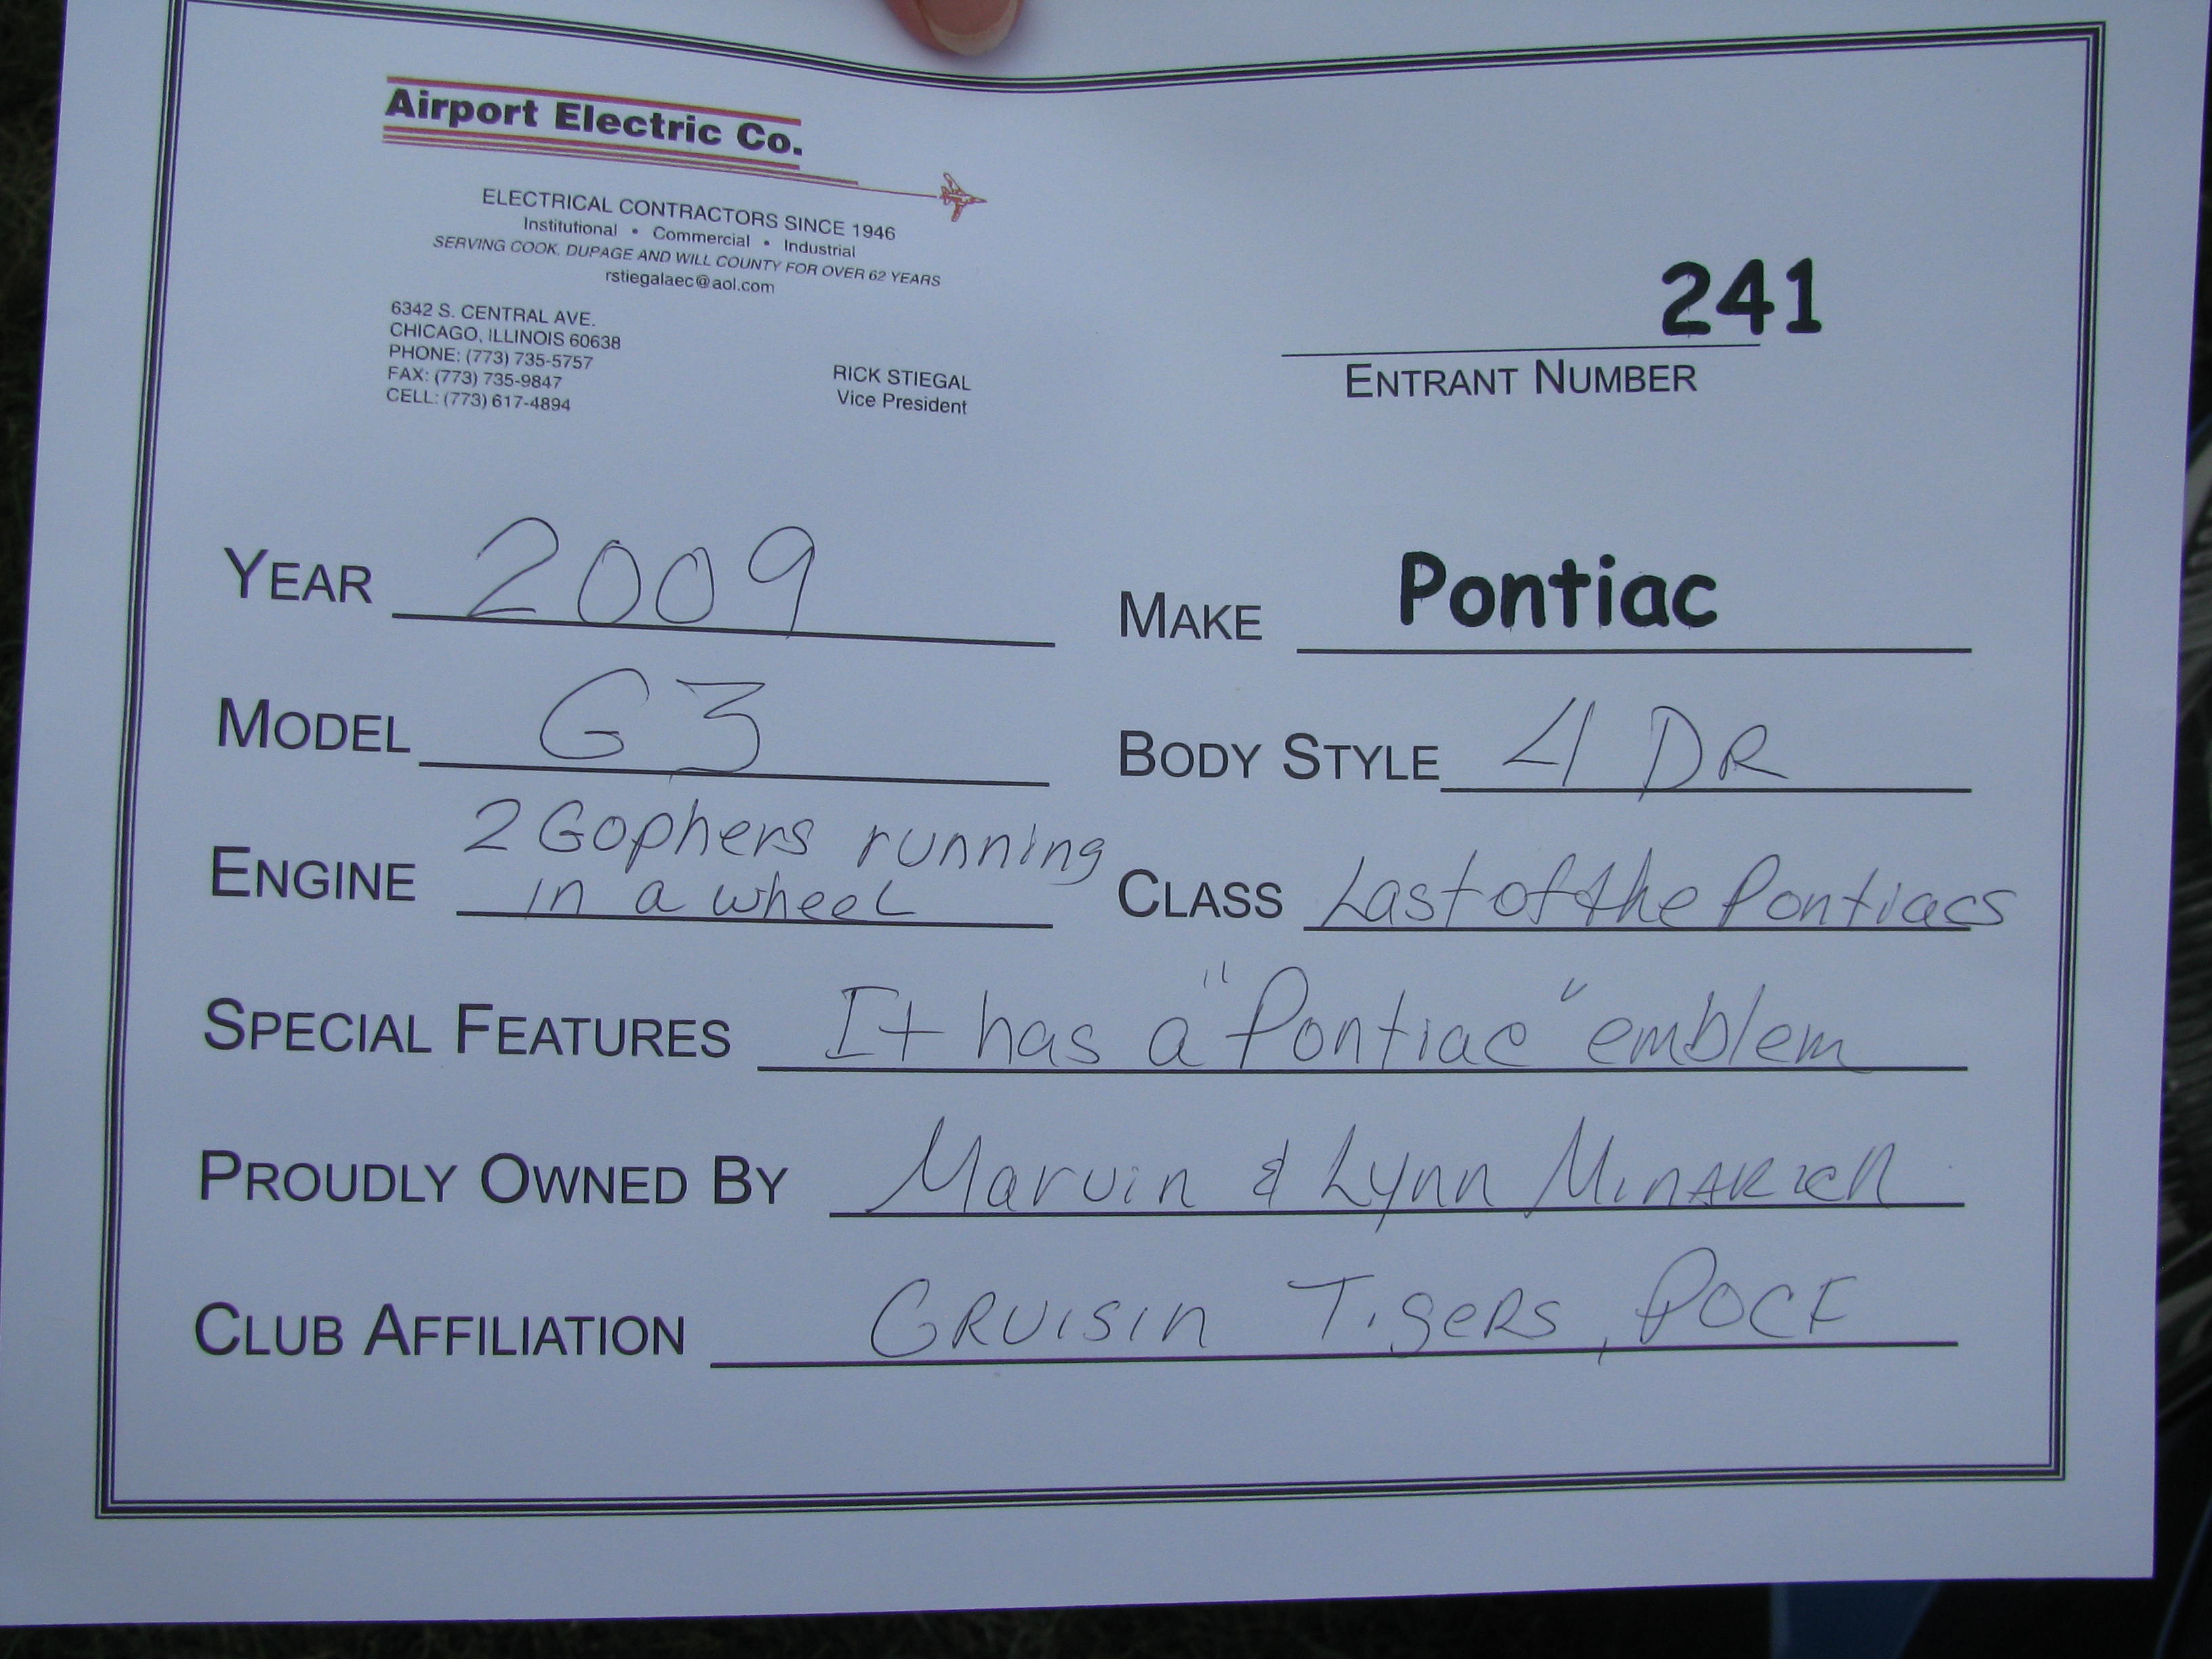 Airport Electric Co.
ELECTRICAL CONTRACTORS SINCE 1946
Institutional • Commercial • Industrial
SERVING COOK, DUPAGE AND WILL COUNTY FOR OVER 62 YEARS
rstiegalaec@aol.com
6342 S. CENTRAL AVE.
CHICAGO, ILLINOIS 60638
PHONE: (773) 735-5757
FAX: (773) 735-9847
CELL: (773) 617-4894
RICK STIEGAL
Vice President
241
ENTRANT NUMBER
YEAR 2009
MAKE Pontiac
MODEL G3
BODY STYLE 4 DR
ENGINE 2 Gophers running
in a wheel
CLASS Last of the Pontiacs
SPECIAL FEATURES It has a "Pontiac" emblem
PROUDLY OWNED BY Marvin & Lynn
CLUB AFFILIATION CRUISIN TIGERS, POCI